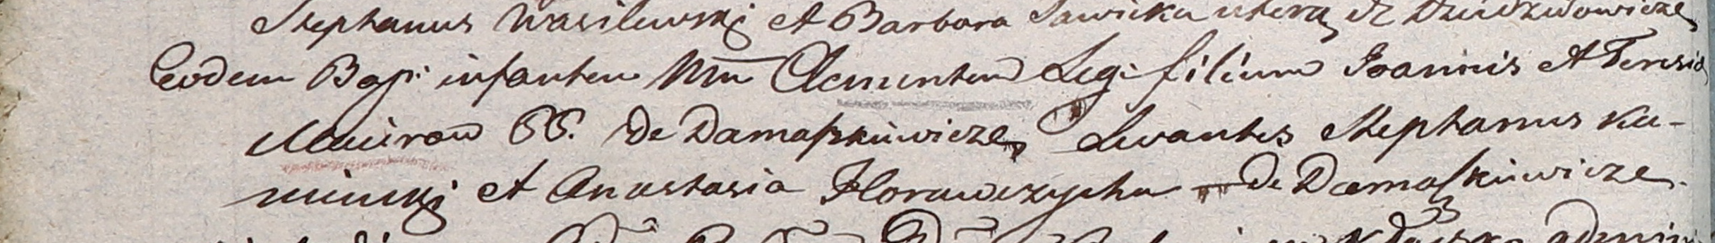 Stephanus Wasilewski et Barbara Sawicka utera de
Eodem Bap: infantem Nm Clementem Leg: filium Joannis et Teresia
Mauirow CC. de Damaszkiewicze, Levantes Stephanus Ka-
minski et Anastasia Horawczycha de Damaszkiewicze.